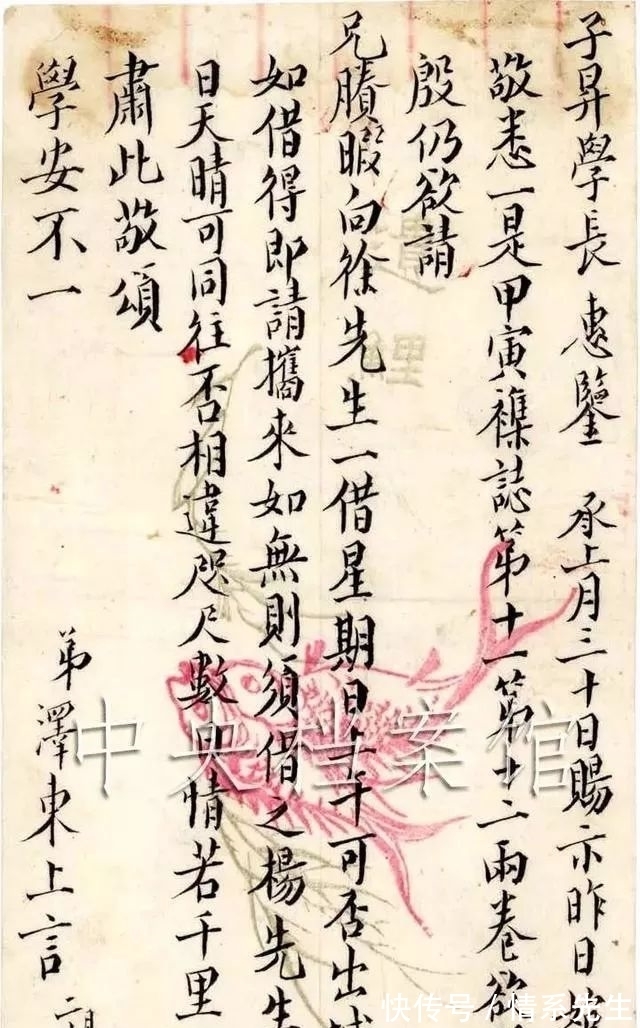 子昇學長 惠鑒 承上月三十日賜示昨日
敬悉一是甲寅襍誌第十一第十二兩卷欲
殷仍欲請
兄賸暇向徐先生一借星期日上午可否出
如借得即請攜來如無則須借之楊先生
日天晴可同往否相違咫尺數日情若千里
肅此敬頌
學安不一
弟澤東上言
中央档案馆
快传号/情系先生